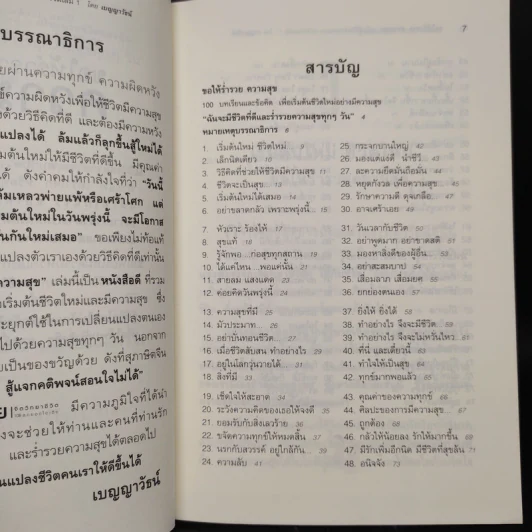 โดย เบญญาวัธน์
บรรณาธิการ
ยผ่านความทุกข์ ความผิดหวัง
ข์ความผิดหวังเพื่อให้ชีวิตมีความสุข
งด้วยวิธีคิดที่ดี และต้องมีความหวัง
แปลงได้ ล้มแล้วก็ลุกขึ้นสู้ใหม่ได้
ต้นใหม่ให้มีชีวิตที่ดีขึ้น มีคุณค่า
ได้ ดังคำคมให้กำลังใจที่ว่า "วันนี้
ล้มเหลวพ่ายแพ้หรือเศร้าโศก แต่
ต้นใหม่ในวันพรุ่งนี้ จะมีโอกาส
ันกันใหม่เสมอ" ขอเพียงไม่ท้อแท้
แปลงตัวเราเองด้วยวิธีคิดที่ดีเท่านั้น
ความสุข" เล่มนี้เป็นหนังสือดี ที่รวม
เริ่มต้นชีวิตใหม่และมีความสุข ซึ่ง
ะยุกต์ใช้ในการเปลี่ยนแปลงตนเอง
ไปด้วยความสุขทุกๆ วัน นอกจาก
เป็นของขวัญด้วย ดังที่สุภาษิตจีน
สู้แจกคติพจน์สอนใจไม่ได้"
มีความภูมิใจที่ได้นำ
งจะช่วยให้ท่านและคนที่ท่านรัก
และร่ำรวยความสุขได้ตลอดไป
นแปลงชีวิตคนเราให้ดีขึ้นได้
เบญญาวัธน์
7
สารบัญ
ขอให้ร่ำรวย ความสุข
100 บทเรียนและข้อคิด เพื่อเริ่มต้นชีวิตใหม่อย่างมีความสุข
"ฉันจะมีชีวิตที่ดีและร่ำรวยความสุขทุกๆ วัน" 4
หมายเหตุบรรณาธิการ 6
1. เริ่มต้นใหม่ ชีวิตใหม่
2. เล็กนิดเดียว
3. วิธีคิดที่ช่วยให้ชีวิตมีความสุข 11
4. ชีวิตจะเป็นสุข...
5. เริ่มต้นใหม่ได้เสมอ
6. อย่าขลาดกลัว เพราะพรุ่งนี้...
7. หัวเราะ ร้องไห้
8. สุขแท้
9. รู้จักพอ...ก่อสุขทุกสถาน
10. ได้แค่ไหน...พอแค่นั้น
11. สายลม แสงแดด
12. ค่อยคิดวันพรุ่งนี้
13. ความสุขที่มี
14. มัวประมาท...
15. อย่าบั่นทอนชีวิต
16. เมื่อชีวิตสับสน ทำอย่างไร
17. อยู่ในโลกวุ่นวายได้
18. สิ่งที่มี
19. เช็ดใจให้สะอาด
20. ระวังความคิดของเธอให้จงดี
21. ยอมรับกับสิ่งเลวร้าย
22. ขจัดความทุกข์ให้หมดสิ้น
23. นรกกับสวรรค์ อยู่ใกล้กัน
24. ความลับ
25. กระจกบานใหญ่
26. มองแต่แง่ดี นำชีวี
27. ละความยึดมั่นถือมั่น
28. หยุดกังวล เพื่อความสุข
29. รักษาความดี ดุจเกลือ
30. อาจเศร้าเลย
31. วันเวลากับชีวิต
32. อย่าพูดมาก อย่าขาดสติ
33. มองหาสิ่งดีของผู้อื่น
34. อย่าสะสมบาป
35. เสื่อมลาภ เสื่อมยศ
36. ยกย่องตนเอง
37. ยิ่งให้ ยิ่งได้
38. ทำอย่างไร จึงจะมีชีวิต
39. ทำอย่างไร จึงจะไม่หวั่นไหว
40. ที่นี่ และเดี๋ยวนี้
41. ทำใจให้เป็นสุข
42. ทุกข์มากพอแล้ว
43. คุณค่าของความทุกข์
44. ศิลปะของการมีความสุข
45. ถูกต้อง
46. กลัวให้น้อยลง รักให้มากขึ้น
47. มีรักเพิ่มอีกนิด มีชีวิตที่สุขล้น
48. อนิจจัง